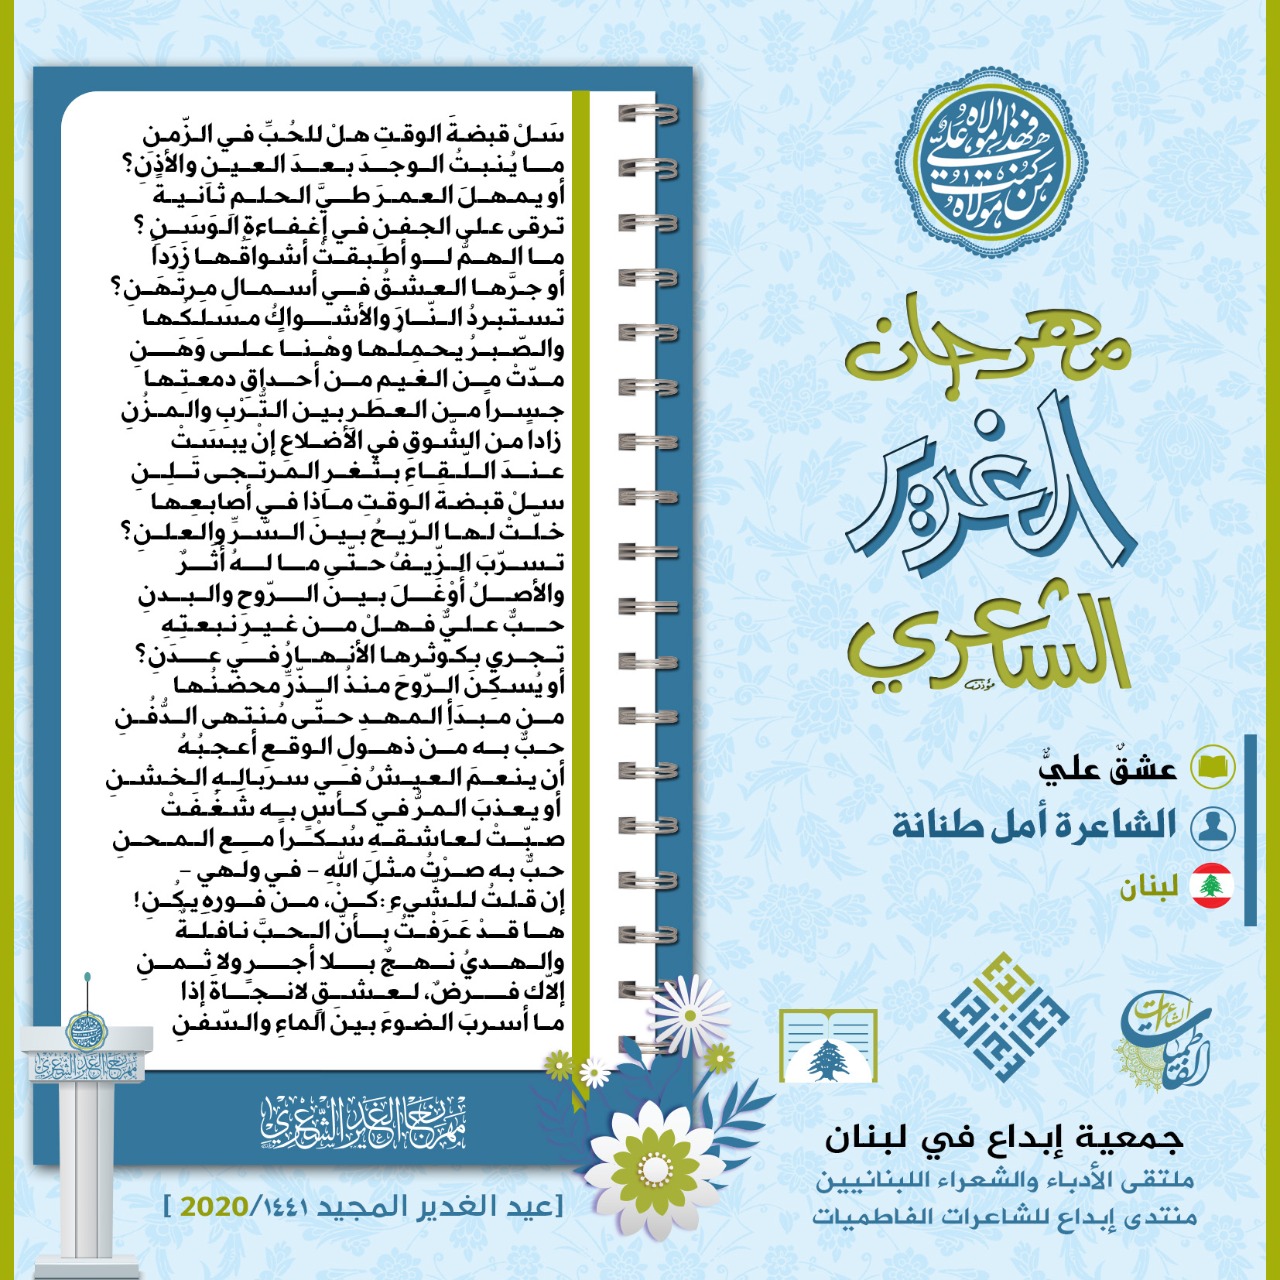 من كنت مولاه
فهذا مولاه علي
مهرجان
الغدير
الشاعري
عشقٌ عليٌّ
الشاعرة أمل طنانة
لبنان
سَلْ قبضةَ الوقتِ هلْ للحُبِّ في الزّمنِ
ما يُنبتُ الوجدَ بعدَ العينِ والأذنِ؟
أو يمهلَ العمرَ طيَّ الحلمِ ثانيةً
ترقى على الجفنِ في إغفاءةِ الوَسَنِ؟
ما الهمُّ لو أطبقتْ أشواقُها زَرَداً
أو جرَّها العشقُ في أسمالِ مرتَهَنِ؟
تستبردُ النّارَ والأشواكُ مسلكُها
والصّبرُ يحملها وهْنا على وَهَنِ
مدّتْ من الغيمِ من أحداقِ دمعتِها
جسراً من العطرِ بين التُّرْبِ والمزْنِ
زادا من الشّوقِ في الأضلاعِ إنْ يبسَتْ
عندَ اللّقاءِ بثغرِ المرتجى تَلِنِ
سلْ قبضةَ الوقتِ ماذا في أصابعِها
خلّتْ لها الرّيحُ بينَ السّرِّ والعلنِ؟
تسرّبَ الزّيفُ حتّى ما لهُ أثرٌ
والأصلُ أوْغَلَ بينَ الرّوحِ والبدنِ
حبٌّ عليٌّ فهلْ من غيرِ نبعتِهِ
تجري بكوثرها الأنهارُ في عدَنِ؟
أو يُسكِنَ الرّوحَ منذُ الذّرِّ محضنُها
من مبدَأِ المهدِ حتّى مُنتهى الدُّفُنِ
حبٌّ به من ذهولِ الوقعِ أعجبُهُ
أن ينعمَ العيشُ في سربالِهِ الخشنِ
أو يعذبَ المرُّ في كأسٍ به شَغُفَتْ
صبّتْ لعاشقهِ سُكْراً مع المحنِ
حبٌّ به صرْتُ مثلَ اللهِ - في ولهي -
إن قلتُ للشّيءِ: كُنْ، من فورهِ يكُنِ!
ها قدْ عَرَفْتُ بأنّ الحبَّ نافلةٌ
والهديُ نهجٌ بلا أجرٍ ولا ثمنِ
إلاّك فرضٌ، لعشقٍ لانجاةَ إذا
ما أسربَ الضوءَ بينَ الماءِ والسّفنِ
مهرجان الغدير الشعري
مهرجان الغدير الشعري
[عيد الغدير المجيد ١٤٤١/2020 ]
الشاعرات
الفاطميات
إبداع
جمعية إبداع في لبنان
ملتقى الأدباء والشعراء اللبنانيين
منتدى إبداع للشاعرات الفاطميات